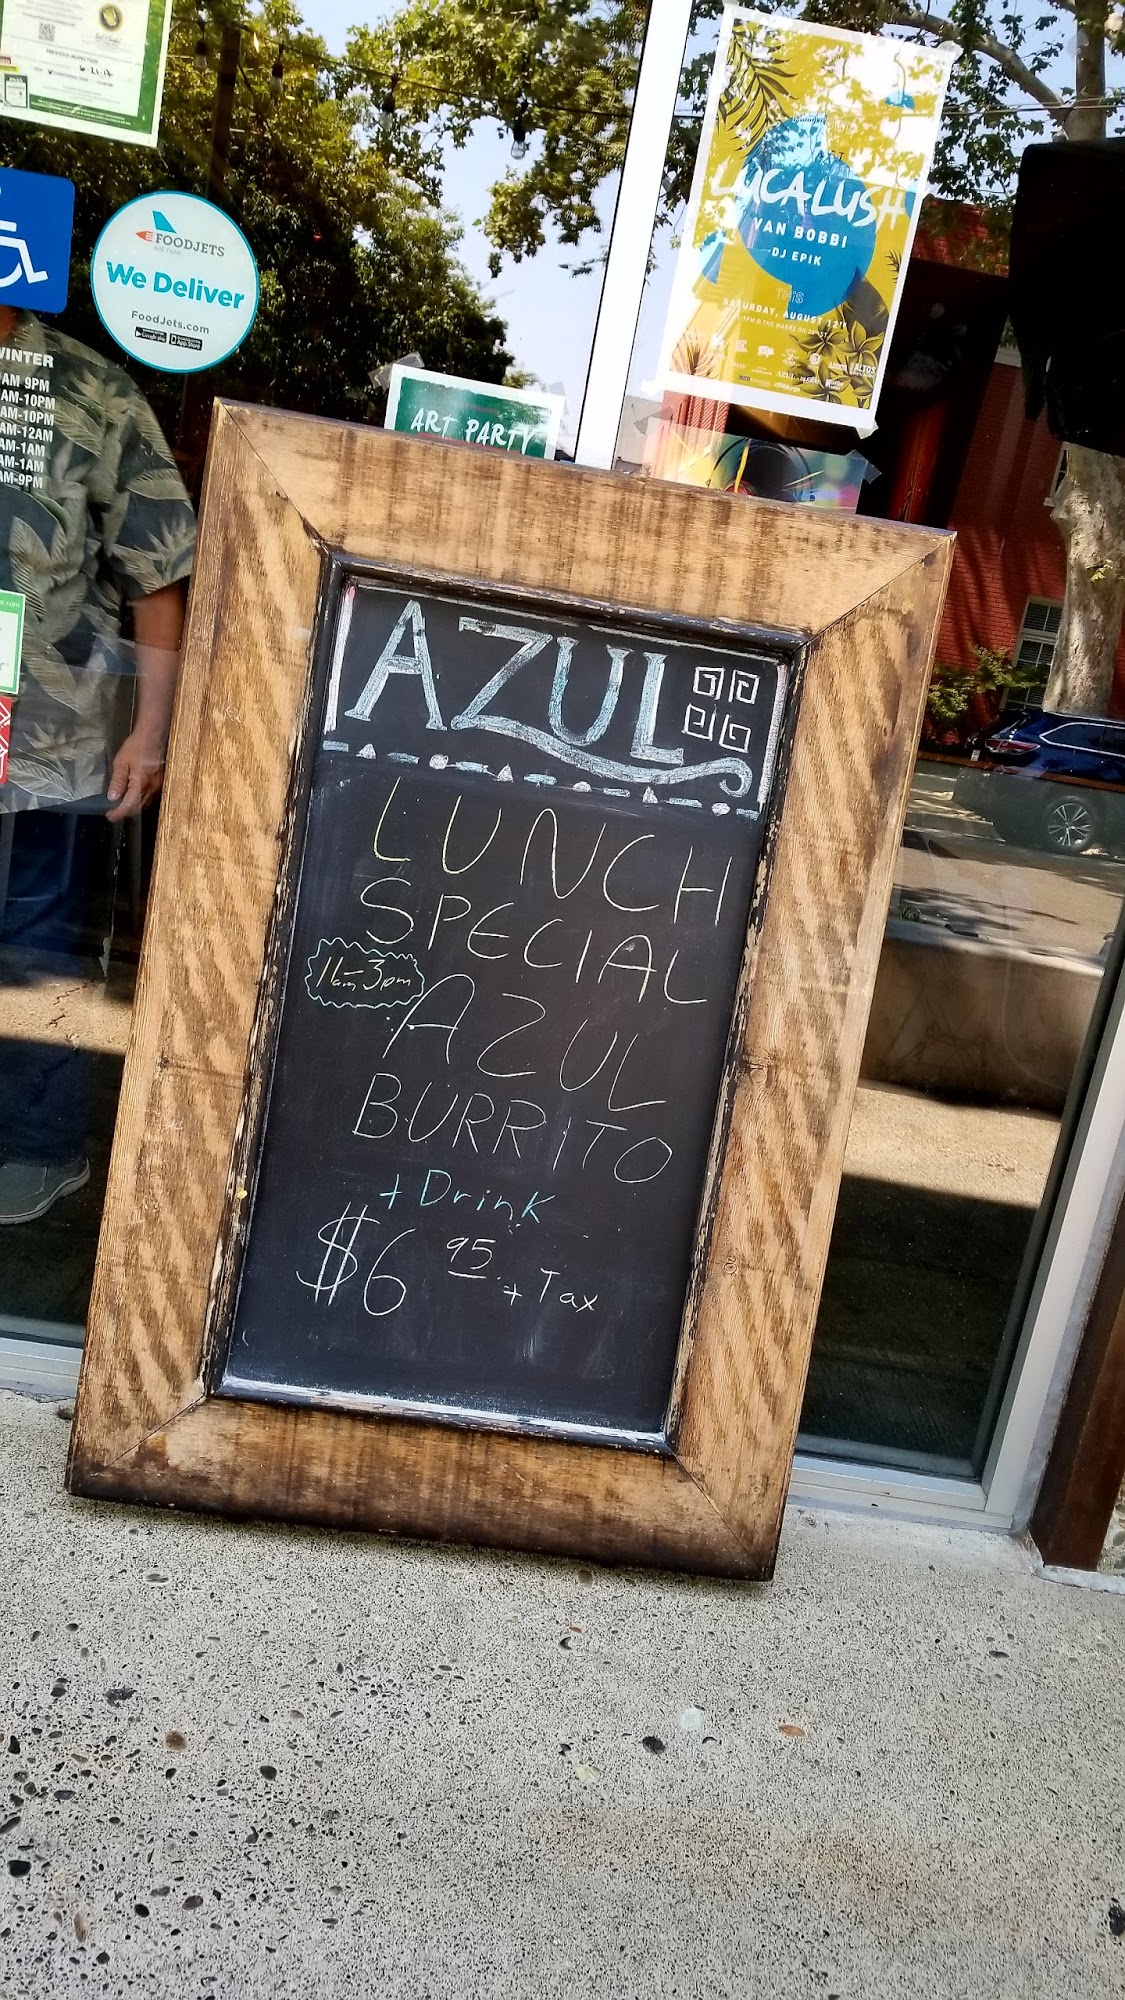 PREVIOUS INSPECTION
FOODJETS
We Deliver
FoodJets.com
WINTER
AM 9PM
AM-10PM
AM-10PM
AM-12AM
AM-1AM
AM-1AM
AM-9PM
ART PARTY
LUCA LUSH
VAN BOBBI
DJ EPIK
THIS
SATURDAY, AUGUST 12
AZUL
LUNCH
SPECIAL
11am-3pm
AZUL
BURRITO
+ Drink
$6 95 + Tax